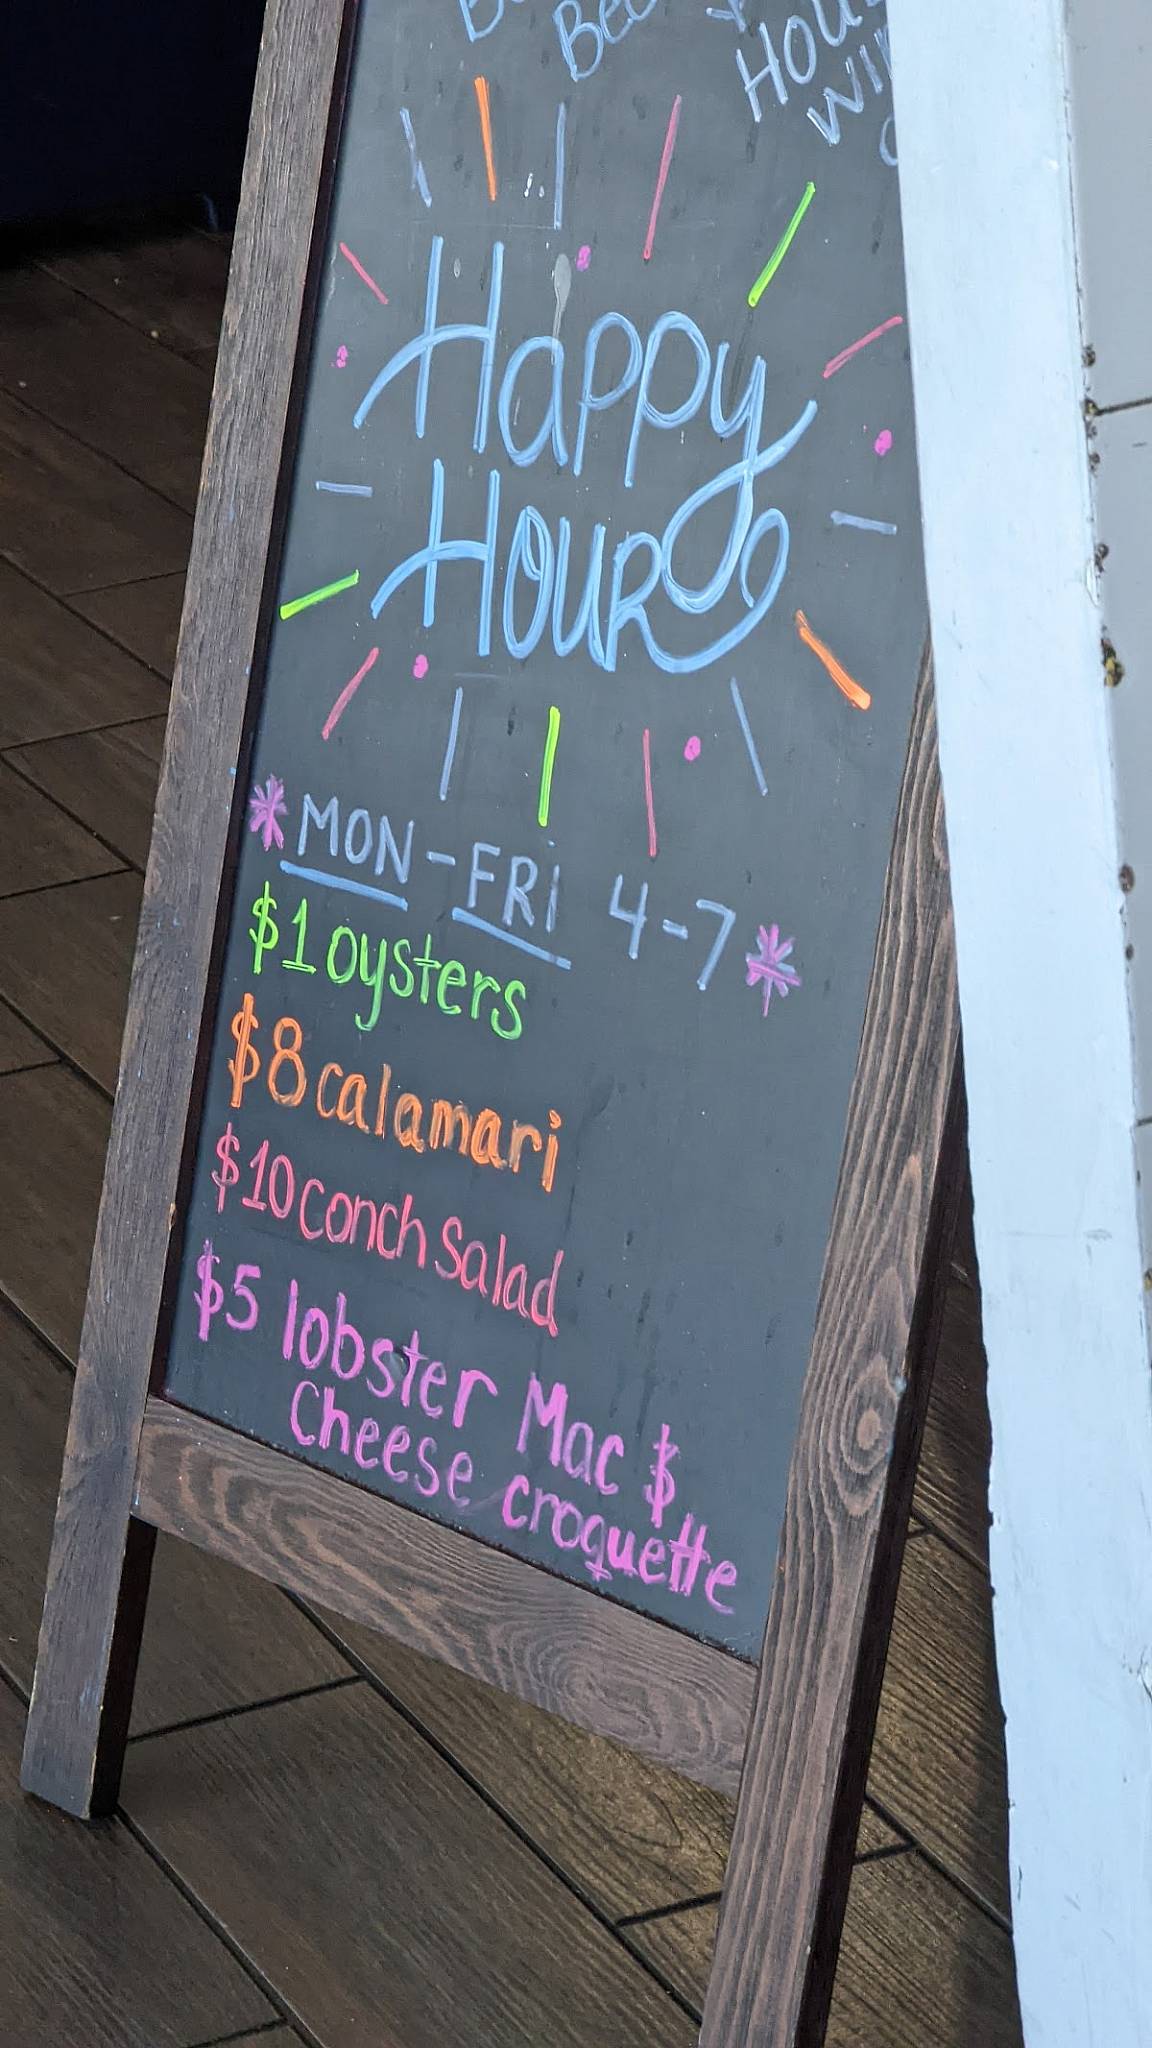 House
Happy
Hour
*MON-FRi 4-7*
$1 oysters
$8 calamari
$10 conch Salad
$5 lobster Mac $
Cheese croquette